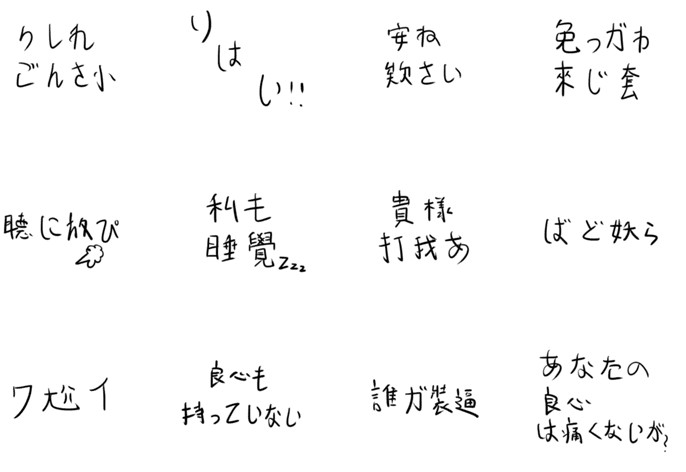 りしれ
ごんさ小
り
は
い!!
安ね
欸さい
免っガわ
來じ套
聴に放ぴ
私も
睡覺zzz
貴様
打我あ
ばど妖ら
ワ尬イ
良心も
持っていない
誰ガ裝逼
あなたの
良心
は痛くないが?